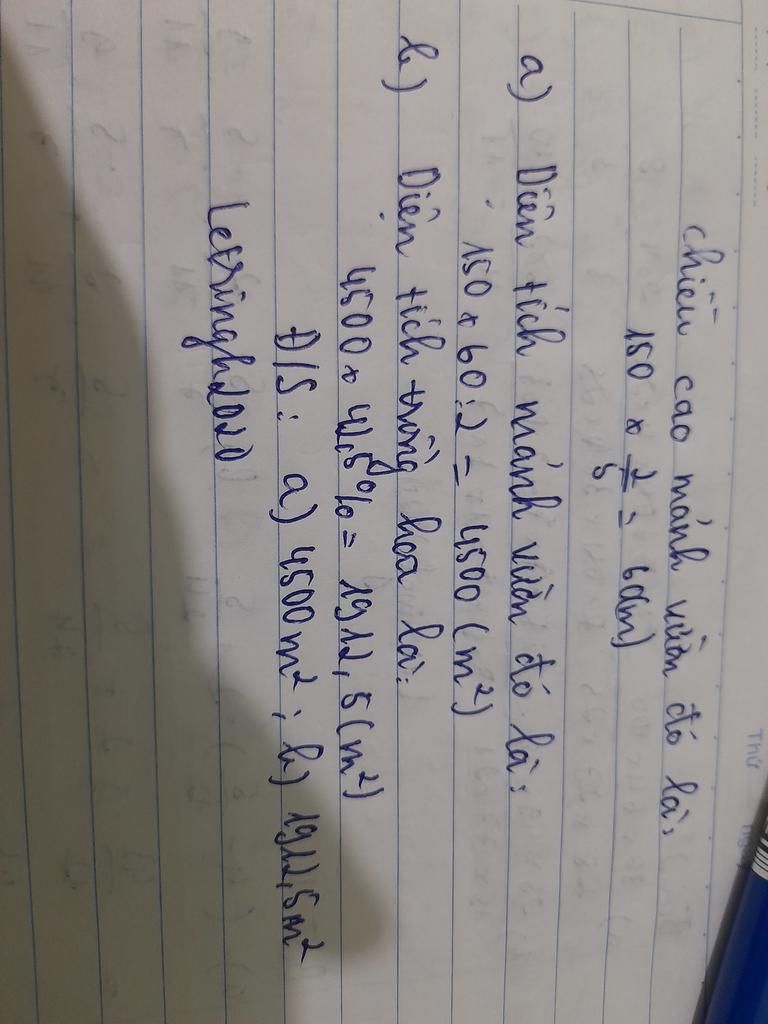 Thứ
chiều cao mảnh vườn đó là:
150 x 2/5 = 60(m)
a) Diện tích mảnh vườn đó là:
150 x 60 : 2 = 4500 (m²)
b) Diện tích trồng hoa là:
4500 x 42,5% = 1912,5 (m²)
Đ/S: a) 4500m²; b) 1912,5m²
Letringh2020